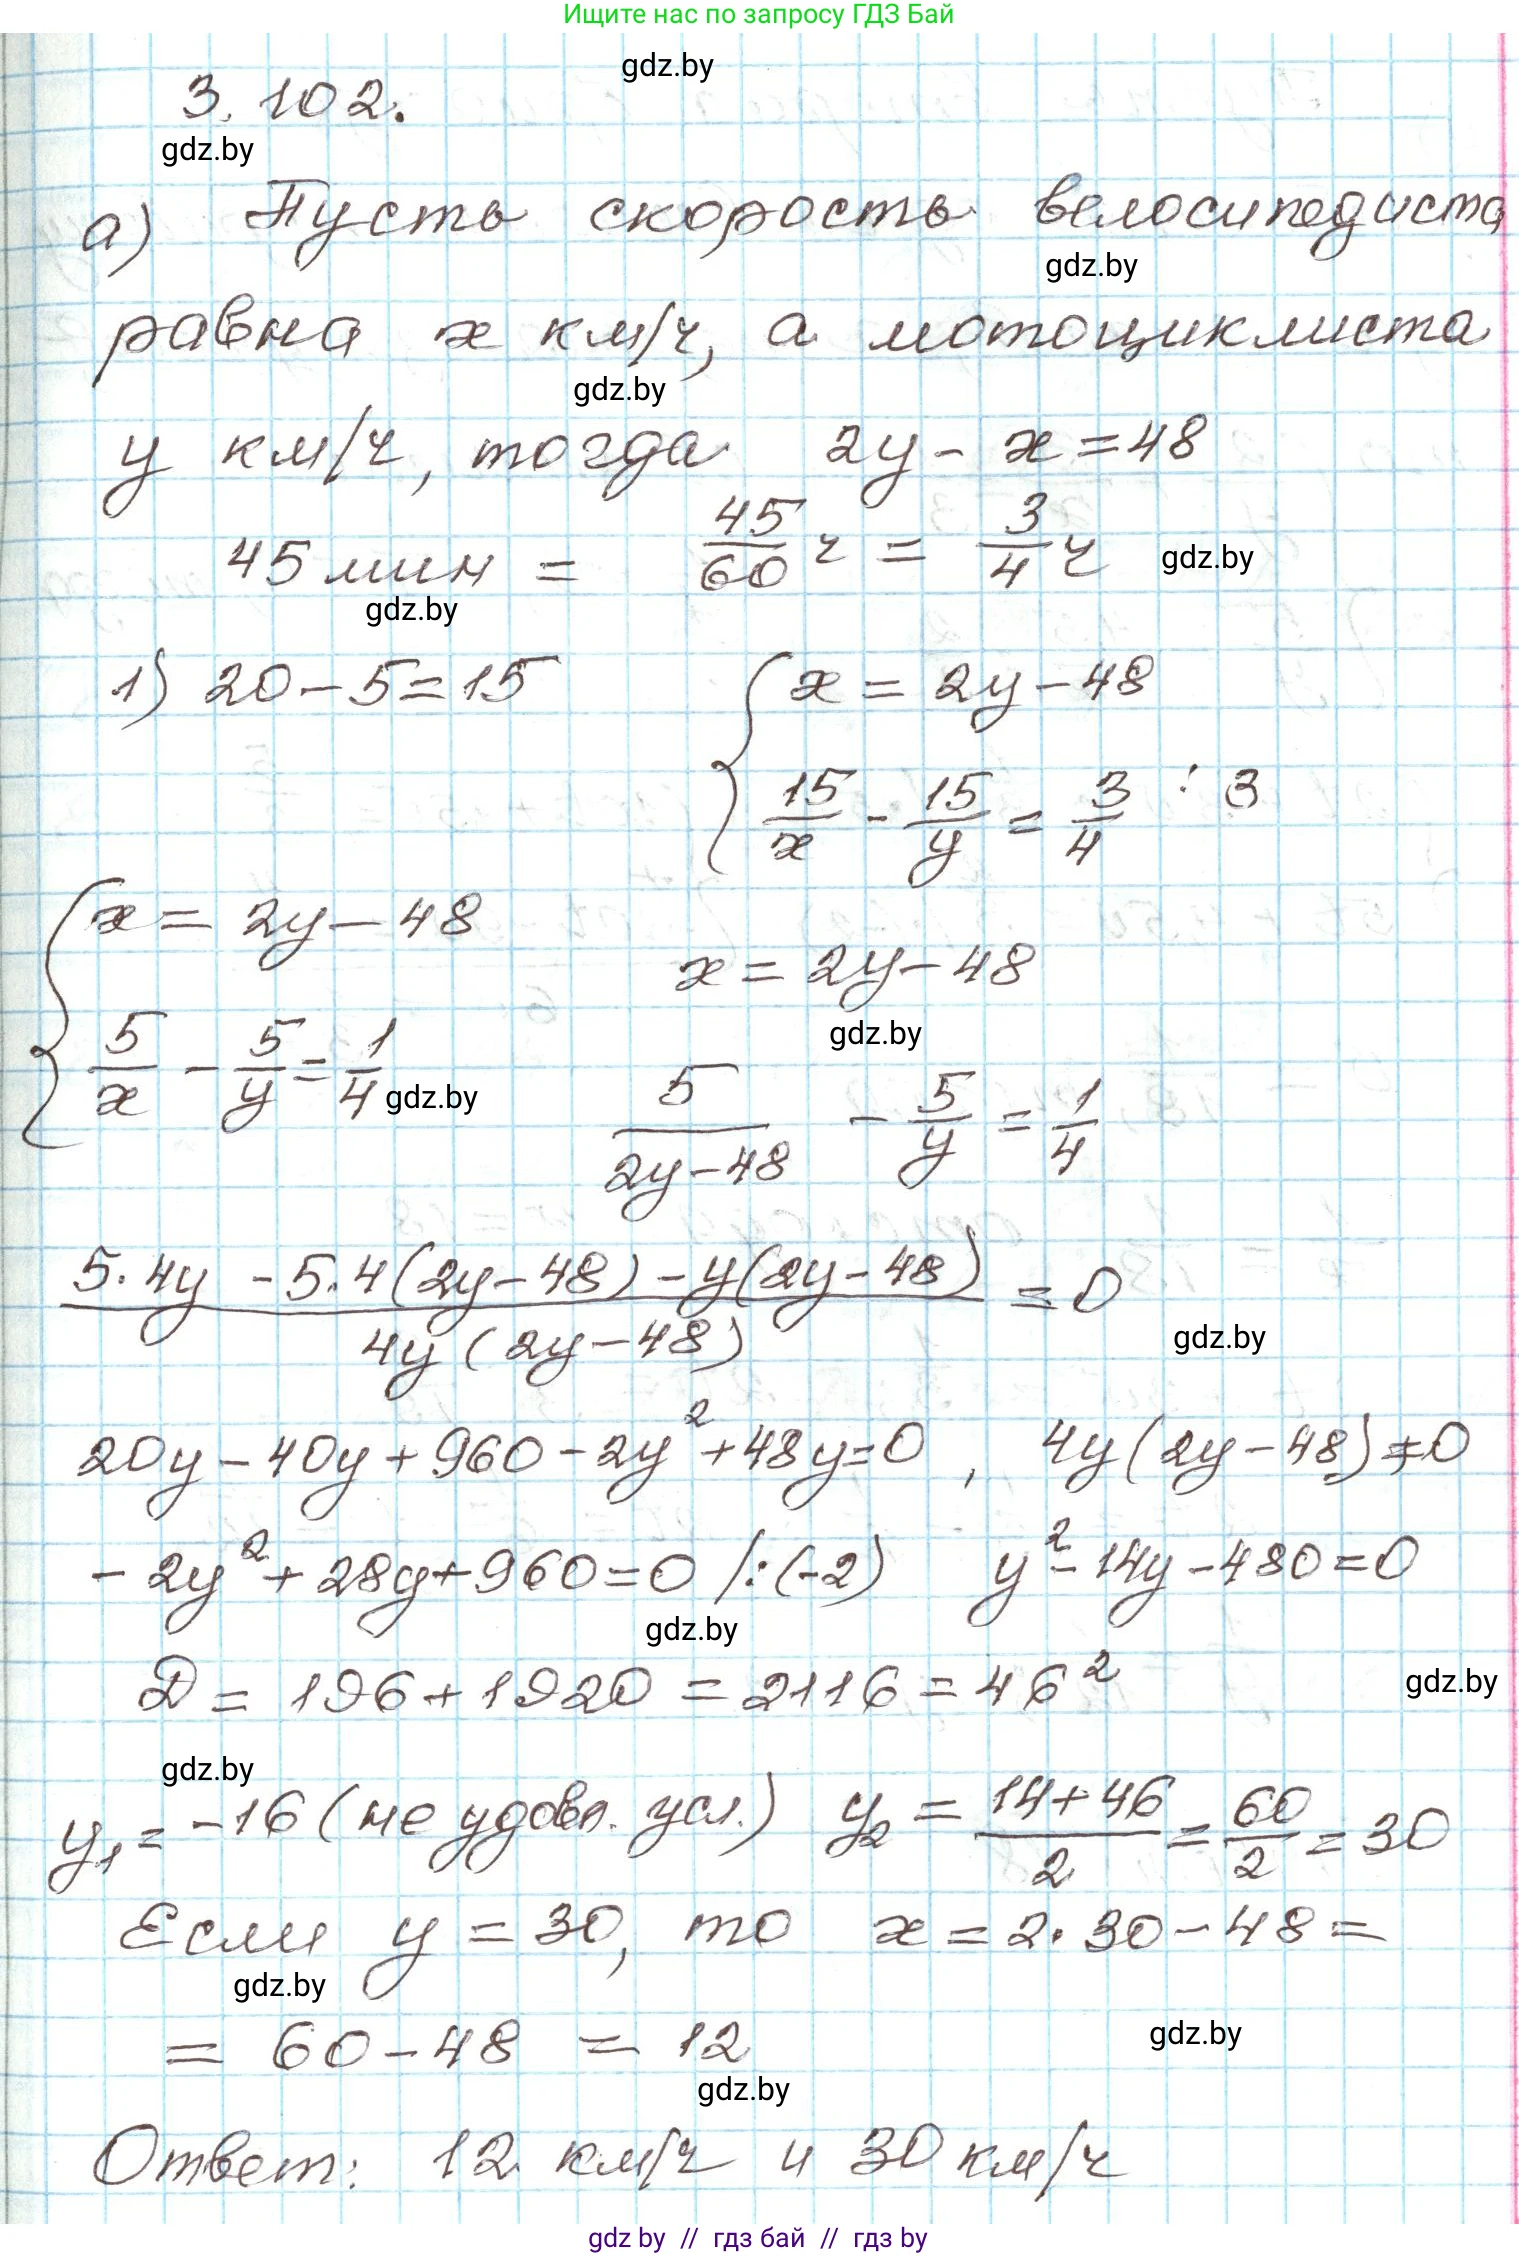 Ищите нас по запросу ГДЗ Бай
gdz.by
3.102.
gdz.by
а) Пусть скорость велосипедиста
gdz.by
равна x км/ч, а мотоциклиста
gdz.by
y км/ч, тогда 2y - x = 48
45 мин = 45/60 ч = 3/4 ч
gdz.by
gdz.by
1) 20 - 5 = 15 { x = 2y - 48
15/x - 15/y = 3/4 : 3
{ x = 2y - 48
x = 2y - 48
gdz.by
5/x - 5/y = 1/4
gdz.by
5/(2y - 48) - 5/y = 1/4
(5·4y - 5·4(2y - 48) - y(2y - 48))/(4y(2y - 48)) = 0
gdz.by
20y - 40y + 960 - 2y² + 48y = 0, 4y(2y - 48) ≠ 0
- 2y² + 28y + 960 = 0 /:(-2) y² - 14y - 480 = 0
gdz.by
D = 196 + 1920 = 2116 = 46²
gdz.by
gdz.by
y₁ = -16 (не удовл. усл.) y₂ = (14 + 46)/2 = 60/2 = 30
Если y = 30, то x = 2·30 - 48 =
gdz.by
= 60 - 48 = 12
gdz.by
gdz.by
Ответ: 12 км/ч и 30 км/ч
gdz by // гдз бай // гдз by